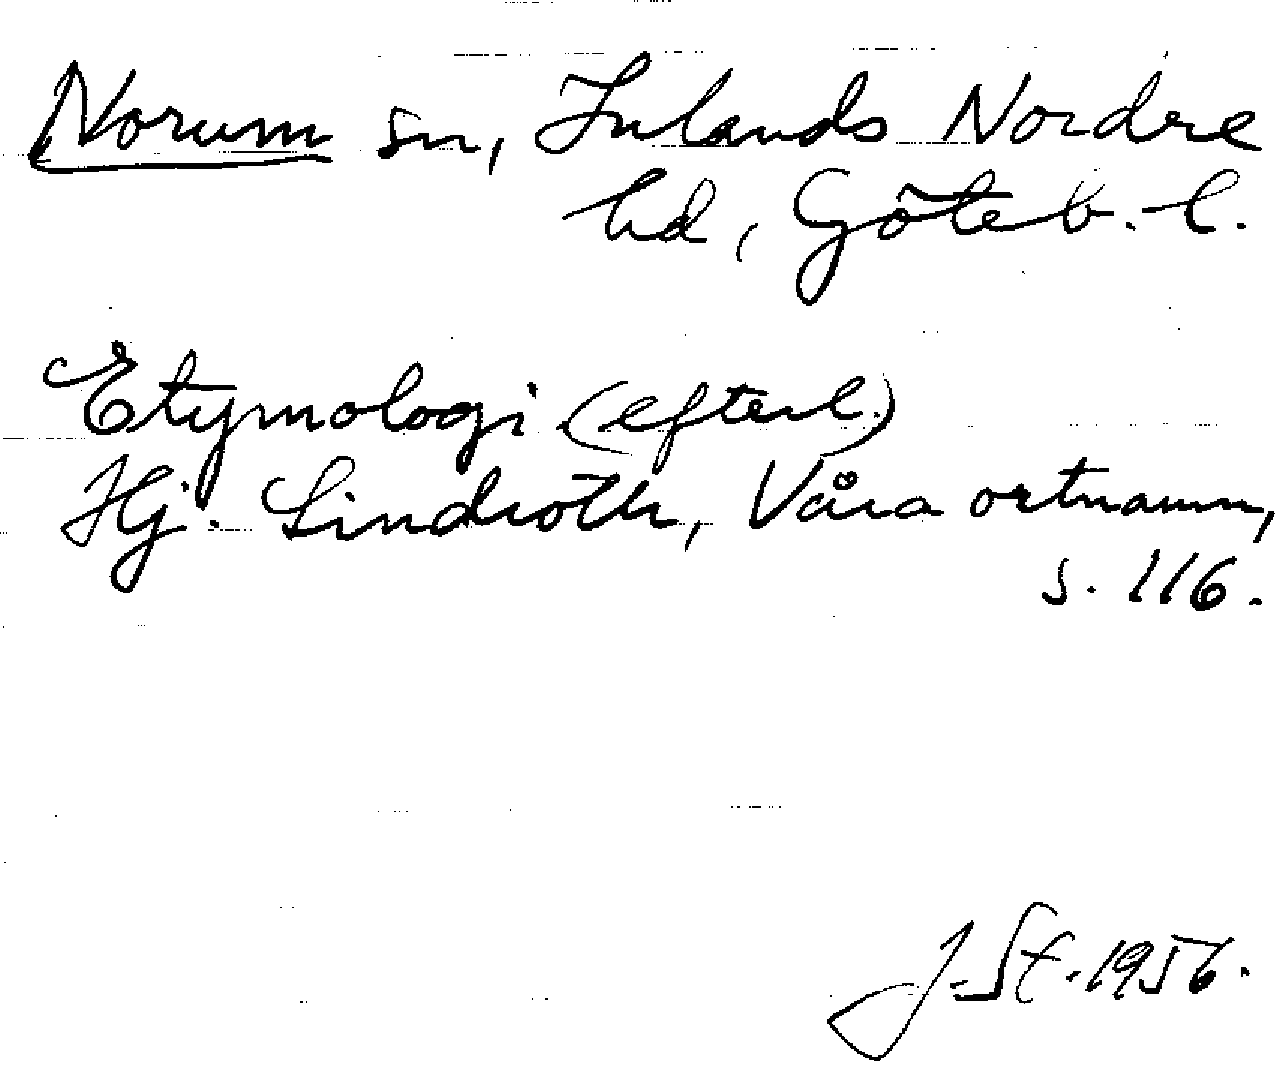 Norum sn, Inlands Nordre
hd, Göteb. l.
Etymologi (efterl.)
Hj. Lindroth, Våra ortnamn,
s. 116.
J. Sf. 1956.